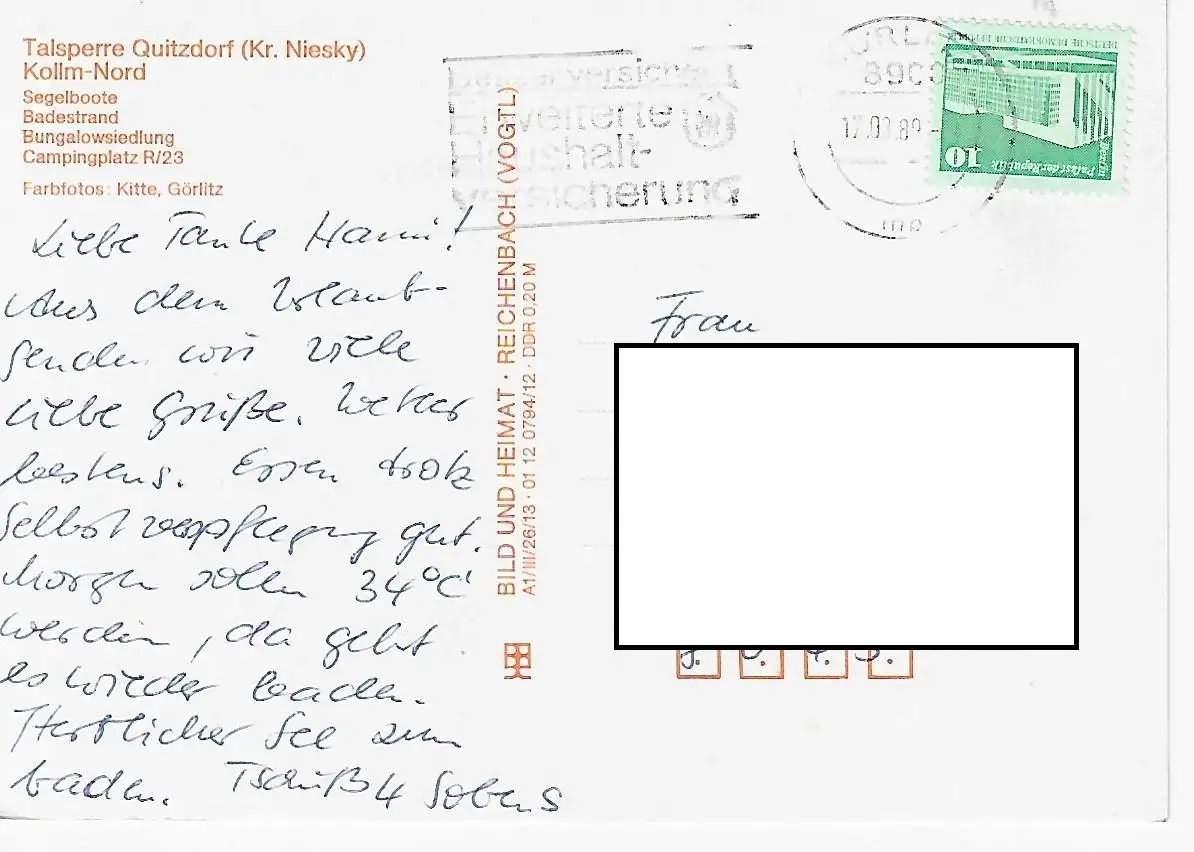 Talsperre Quitzdorf (Kr. Niesky)
Kollm-Nord
Segelboote
Badestrand
Bungalowsiedlung
Campingplatz R/23
Farbfotos: Kitte, Görlitz
Liebe Tante Hanni!
Aus dem Urlaub-
senden wir viele
liebe Grüße. Wetter
bestens. Essen trotz
Selbstverpflegung gut.
Morgen sollen 34°C
werden, da geht
es wieder baden.
Herrlicher See zum
baden. Tschüß 4
BILD UND HEIMAT · REICHENBACH (VOGTL)
A1/III/26/13 · 01 12 0794/12 · DDR 0,20 M
versichert
Erweiterte
Haushalt-
versicherung
890
89
DEUTSCHE DEMOKRATISCHE REPUBLIK
Berlin
Palast der Republik
10
Frau